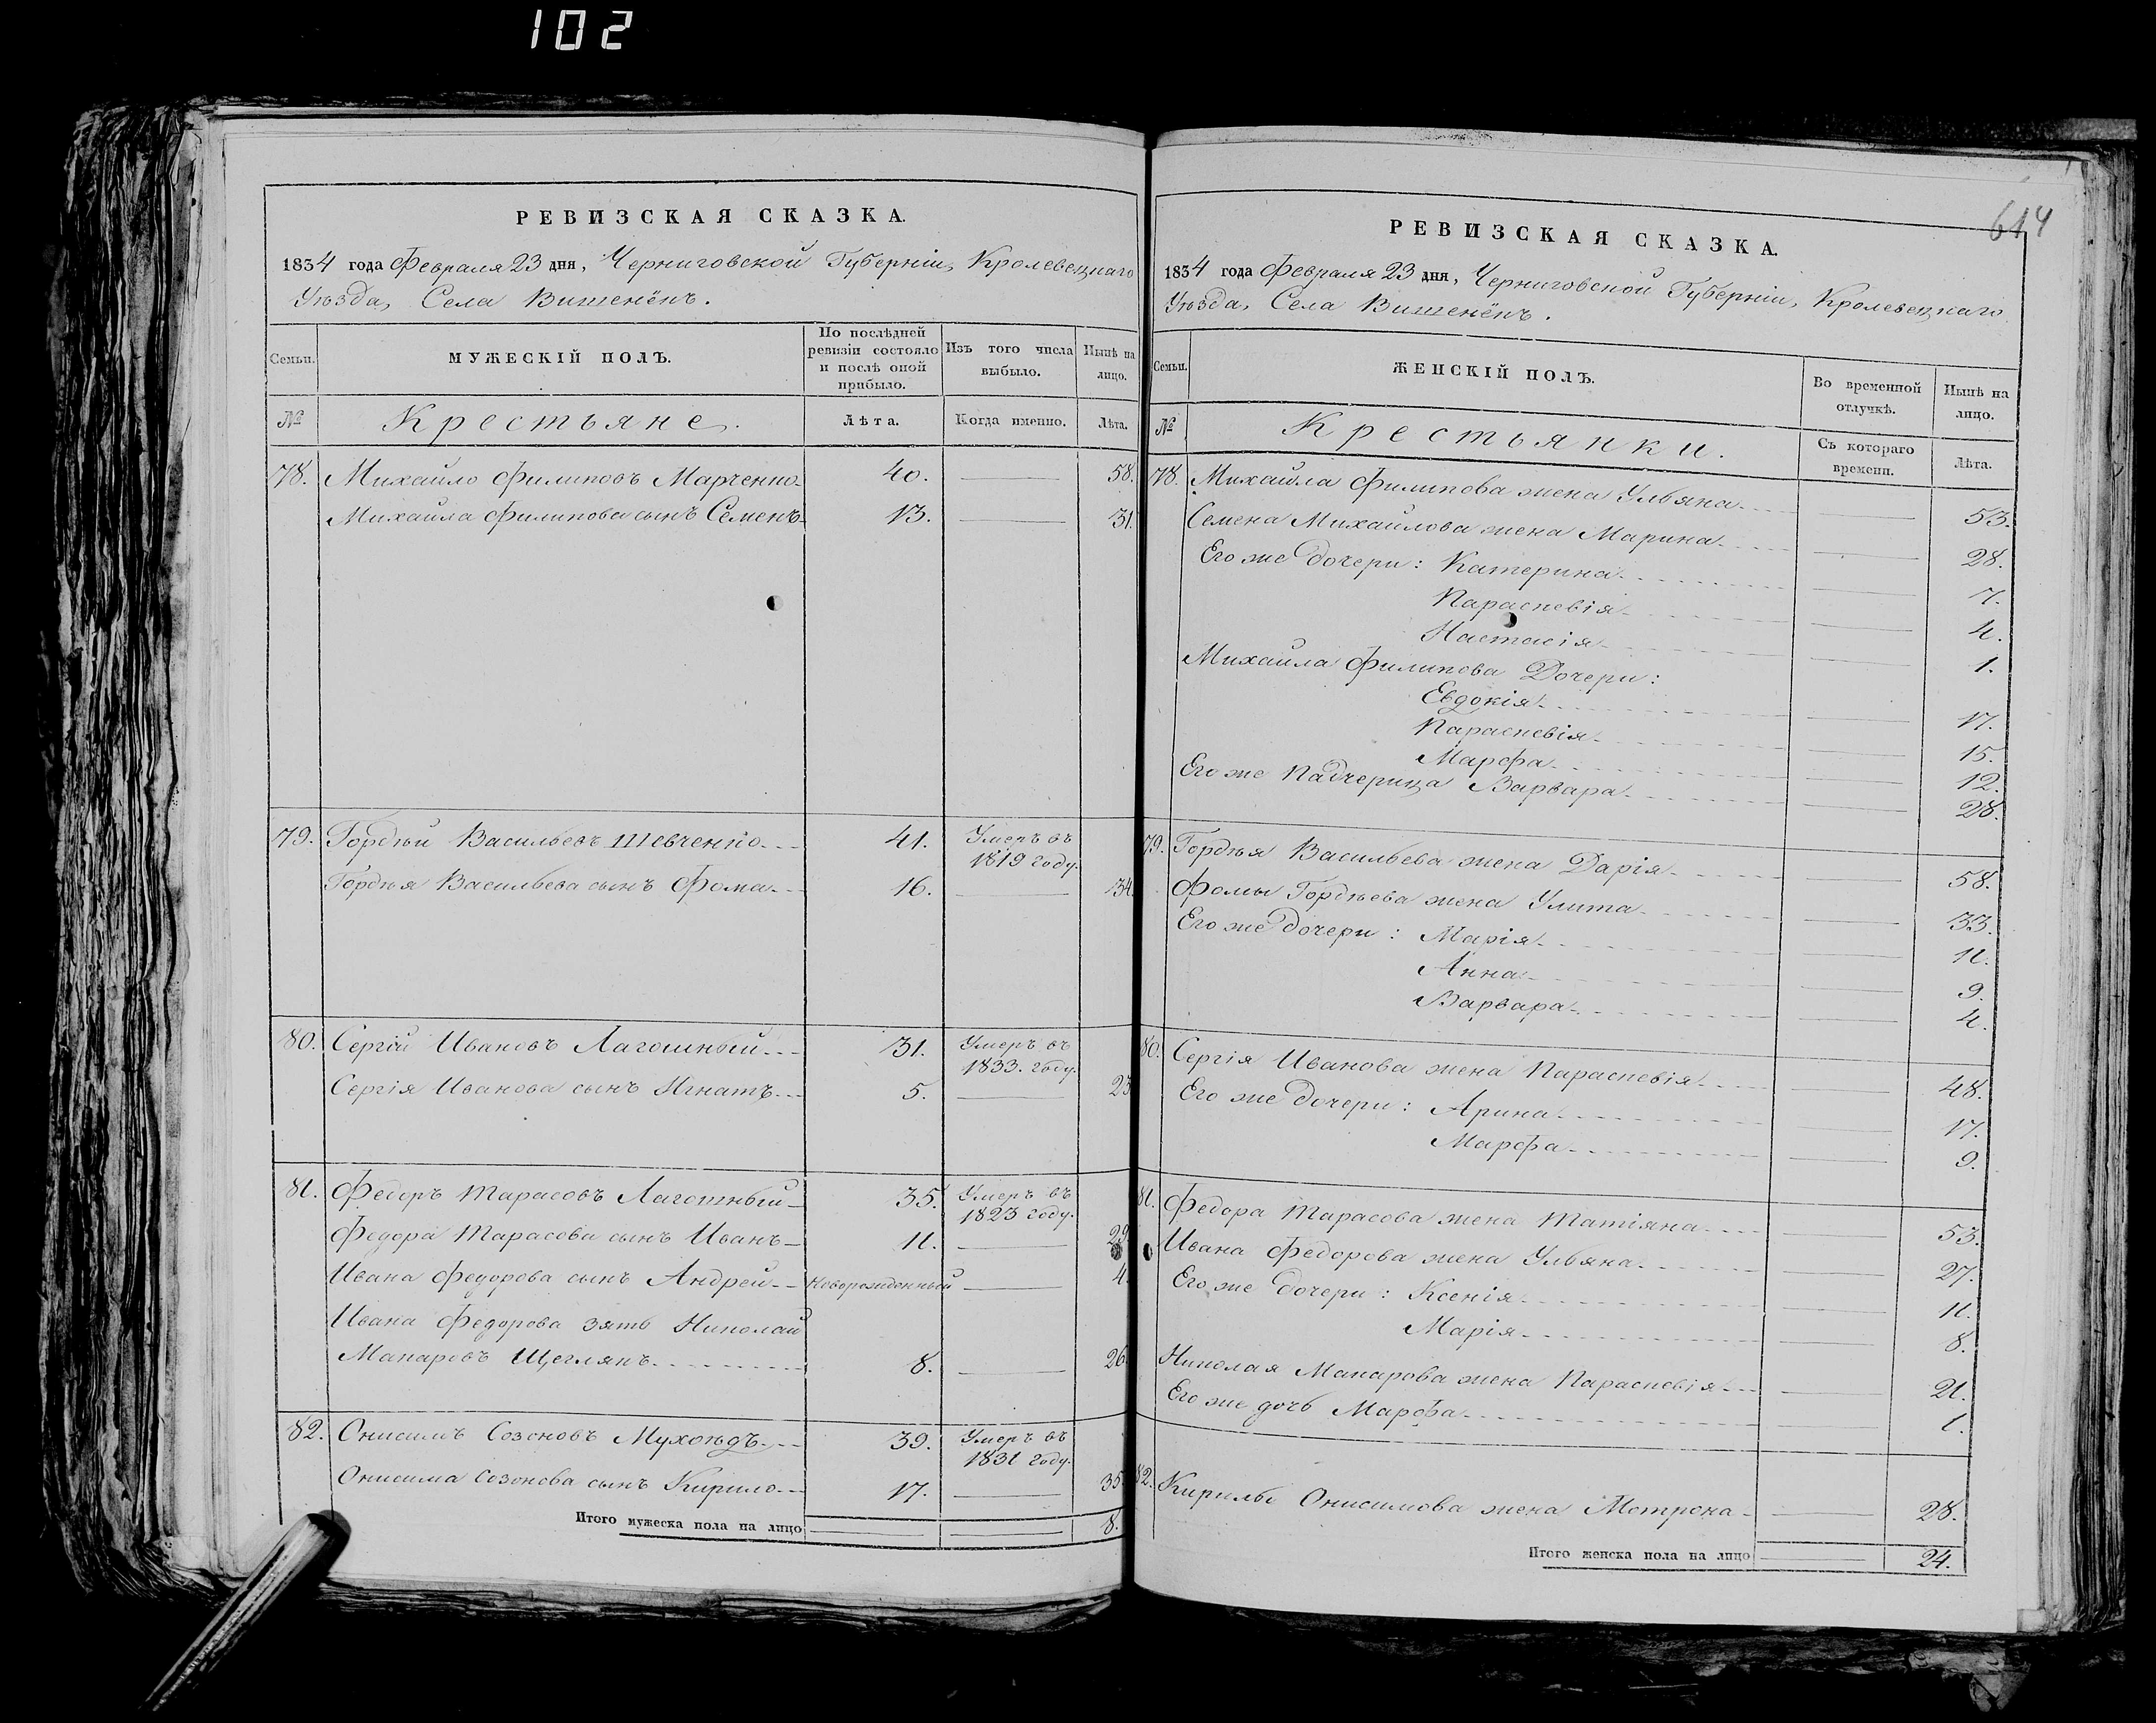 102
РЕВИЗСКАЯ СКАЗКА.
1834 года Февраля 23 дня, Черниговской Губерніи, Кролевецкаго
Уѣзда, Села Вишенёнъ.
Семьи.
МУЖЕСКІЙ ПОЛЪ.
По послѣдней ревизіи состояло и послѣ оной прибыло.
Изъ того числа выбыло.
Нынѣ на лицо.
№
Крестьяне.
Лѣта.
Когда именно.
Лѣта.
78. Михайло Филиповъ Марченко 40. 58.
Михайла Филипова сынъ Семенъ 13. 31.
79. Гордѣй Васильевъ Шевченко 41. Умеръ въ 1819 году.
Гордѣя Васильева сынъ Фома 16. 34.
80. Сергій Ивановъ Лагошный 31. Умеръ въ 1833. году.
Сергія Иванова сынъ Игнатъ 5. 23
81. Федоръ Тарасовъ Лагошный 35. Умеръ въ 1823 году.
Федора Тарасова сынъ Иванъ 11. 29.
Ивана Федорова сынъ Андрей Новорожденный 4.
Ивана Федорова зять Николай
Макаровъ Щеглянъ 8. 26.
82. Онисимъ Созоновъ Мухоѣдъ 39. Умеръ въ 1831 году.
Онисима Созонова сынъ Кирило 17. 35.
Итого мужеска пола на лицо 8.
614
РЕВИЗСКАЯ СКАЗКА.
1834 года Февраля 23 дня, Черниговской Губерніи, Кролевецкаго
Уѣзда, Села Вишенёнъ.
Семьи.
ЖЕНСКІЙ ПОЛЪ.
Во временной отлучкѣ.
Нынѣ на лицо.
№
Крестьянки.
Съ котораго времени.
Лѣта.
78. Михайла Филипова жена Ульяна 53.
Семена Михайлова жена Марина 28.
Его же дочери: Катерина 7.
Параскевія 4.
Настасія 1.
Михайла Филипова Дочери:
Евдокія 17.
Параскевія 15.
Марфа 12.
Его же Падчерица Варвара 28.
79. Гордѣя Васильева жена Дарія 58.
Фомы Гордѣева жена Улита 33.
Его же дочери: Марія 11.
Анна 9.
Варвара 4.
80. Сергія Иванова жена Параскевія 48.
Его же дочери: Арина 17.
Марфа 9.
81. Федора Тарасова жена Татіяна 53.
Ивана Федорова жена Ульяна 27.
Его же дочери: Ксенія 11.
Марія 8.
Николая Макарова жена Параскевія 21.
Его же дочь Марфа 1.
82. Кирилы Онисимова жена Мотрона 28.
Итого женска пола на лицо 24.